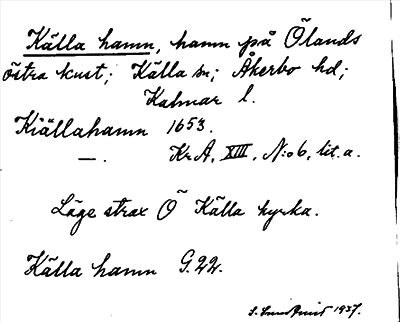 Källa hamn, hamn på Ölands
östra kust; Källa sn; Åkerbo hd;
Kalmar l.
Kiällahamn 1653.
—. KrA, XIII, N:o 6, lit. a.
Läge strax Ö Källa kyrka.
Källa hamn G.22.
S. Sundqvist 1937.